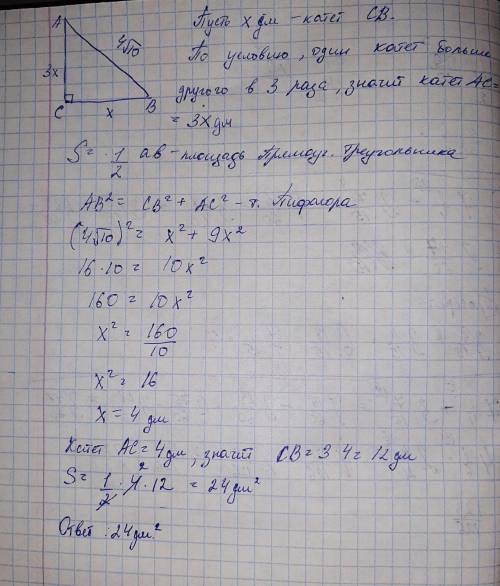 A
4√10
3x
C
x
B
Пусть x дм – катет CB.
По условию, один катет больше
другого в 3 раза, значит катет AC =
= 3x дм
S = 1/2 ab – площадь прямоуг. треугольника
AB² = CB² + AC² – т. Пифагора
(4√10)² = x² + 9x²
16·10 = 10x²
160 = 10x²
x² = 160/10
x² = 16
x = 4 дм
Катет AC = 4 дм, значит CB = 3·4 = 12 дм
S = 1/2 · 4 2 · 12 = 24 дм²
Ответ: 24 дм²